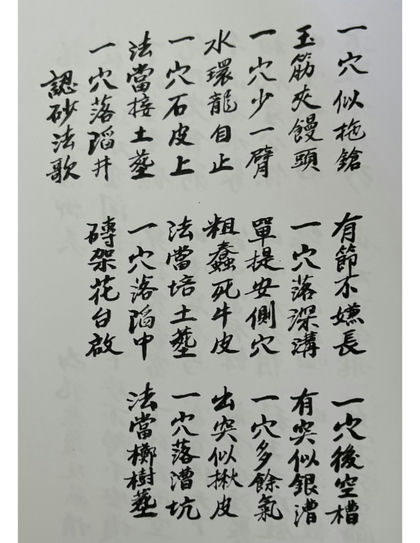 一穴似拖鎗 有節不嫌長 一穴後空槽
玉筋夾饅頭 一穴落深溝 有突似銀漕
一穴少一臂 單提安側穴 一穴多餘氣
水環龍自止 粗蠢死牛皮 出突似揪皮
一穴石皮上 法當培土塟 一穴落漕坑
法當接土塟 一穴落蹈中 法當樹塟
一穴落蹈井 磚架花台啟
認砂法歌